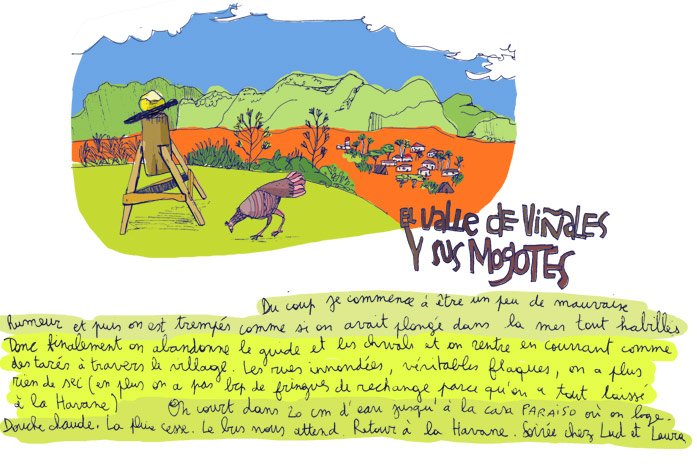 EL VALLE DE VIÑALES
Y SUS MOGOTES
Du coup je commence à être un peu de mauvaise
humeur et puis on est trempés comme si on avait plongé dans la mer tout habillés
Donc finalement on abandonne le guide et les chevals et on rentre en courrant comme
des tarés à travers le village. Les rues innondées, véritables flaques, on a plus
rien de sec (en plus on a pas bcp de fringues de rechange parce qu'on a tout laissé
à la Havane) On court dans 20 cm d'eau jusqu'à la casa PARAISO où on loge.
Douche chaude. La pluie cesse. Le bus nous attend. Retour à la Havane. Soirée chez Lud et Laura